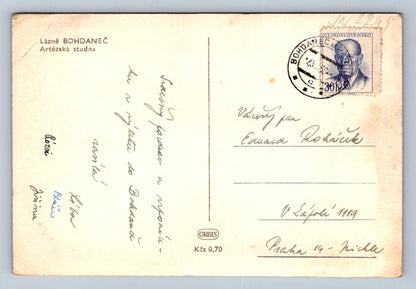 Lázně BOHDANEČ
Artézská studna
Srdečný pozdrav a vzpomín-
ku z výletu do Bohdanče
zasílá
Růža
Jiřina
ORBIS
Kčs 0,70
BOHDANEČ
ČESKOSLOVENSKO
30
Vážený pan
Eduard Roháček
V Zápolí 1119
Praha 14 - Michle